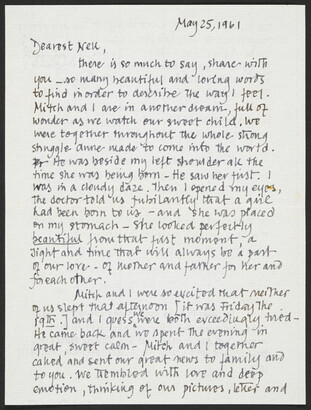 May 25, 1961
Dearest Nell,
there is so much to say, share with
you - so many beautiful and loving words
to find in order to describe the way I feel.
Mitch and I are in another dream, full of
wonder as we watch our sweet child, we
were together throughout the whole strong
struggle Anne made to come into the world.
He was beside my left shoulder all the
time she was being born - He saw her first. I
was in a cloudy daze. Then I opened my eyes,
the doctor told us jubilantly that a girl
had been born to us - and she was placed
on my stomach - She looked perfectly
beautiful from that first moment, a
sight and time that will always be a part
of our love - of mother and father for her and
for each other.
Mitch and I were so excited that neither
of us slept that afternoon [it was Friday the
19th.] and I guess we were both exceedingly tired -
He came back and we spent the evening in
great, sweet calm - Mitch and I together
called and sent our great news to family and
to you. We trembled with love and deep
emotion, thinking of our pictures, letter and